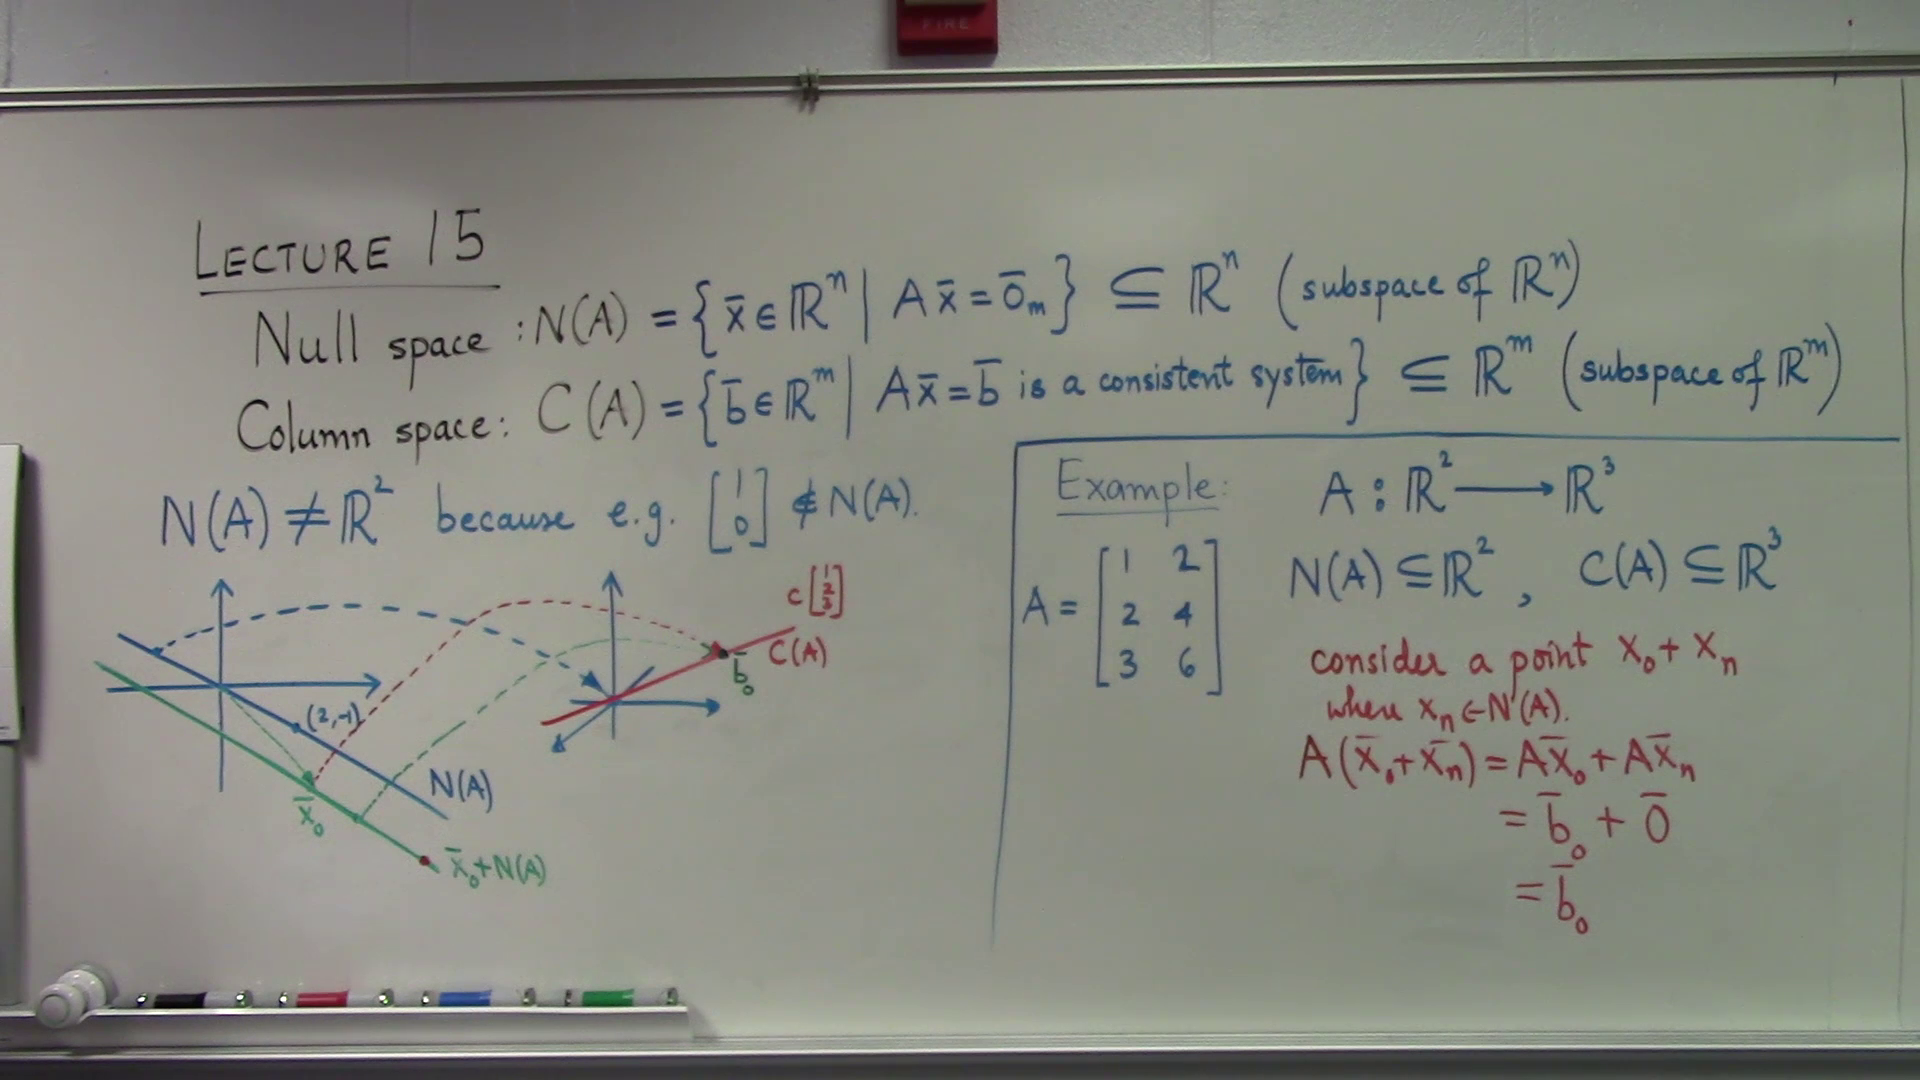 FIRE
LECTURE 15
Null space : N(A) = { x̄ ∈ ℝⁿ | Ax̄ = 0̄ₘ } ⊆ ℝⁿ (subspace of ℝⁿ)
Column space : C(A) = { b̄ ∈ ℝᵐ | Ax̄ = b̄ is a consistent system } ⊆ ℝᵐ (subspace of ℝᵐ)
N(A) ≠ ℝ² because e.g. [1 0] ∉ N(A).
c [1 2 3]
C(A)
b̄₀
(2,-1)
N(A)
x̄₀
x̄₀+N(A)
Example: A : ℝ² ⟶ ℝ³
N(A) ⊆ ℝ² , C(A) ⊆ ℝ³
A = [1 2
2 4
3 6]
consider a point x₀ + xₙ
where xₙ ∈ N(A).
A(x̄₀+x̄ₙ) = Ax̄₀ + Ax̄ₙ
= b̄₀ + 0̄
= b̄₀